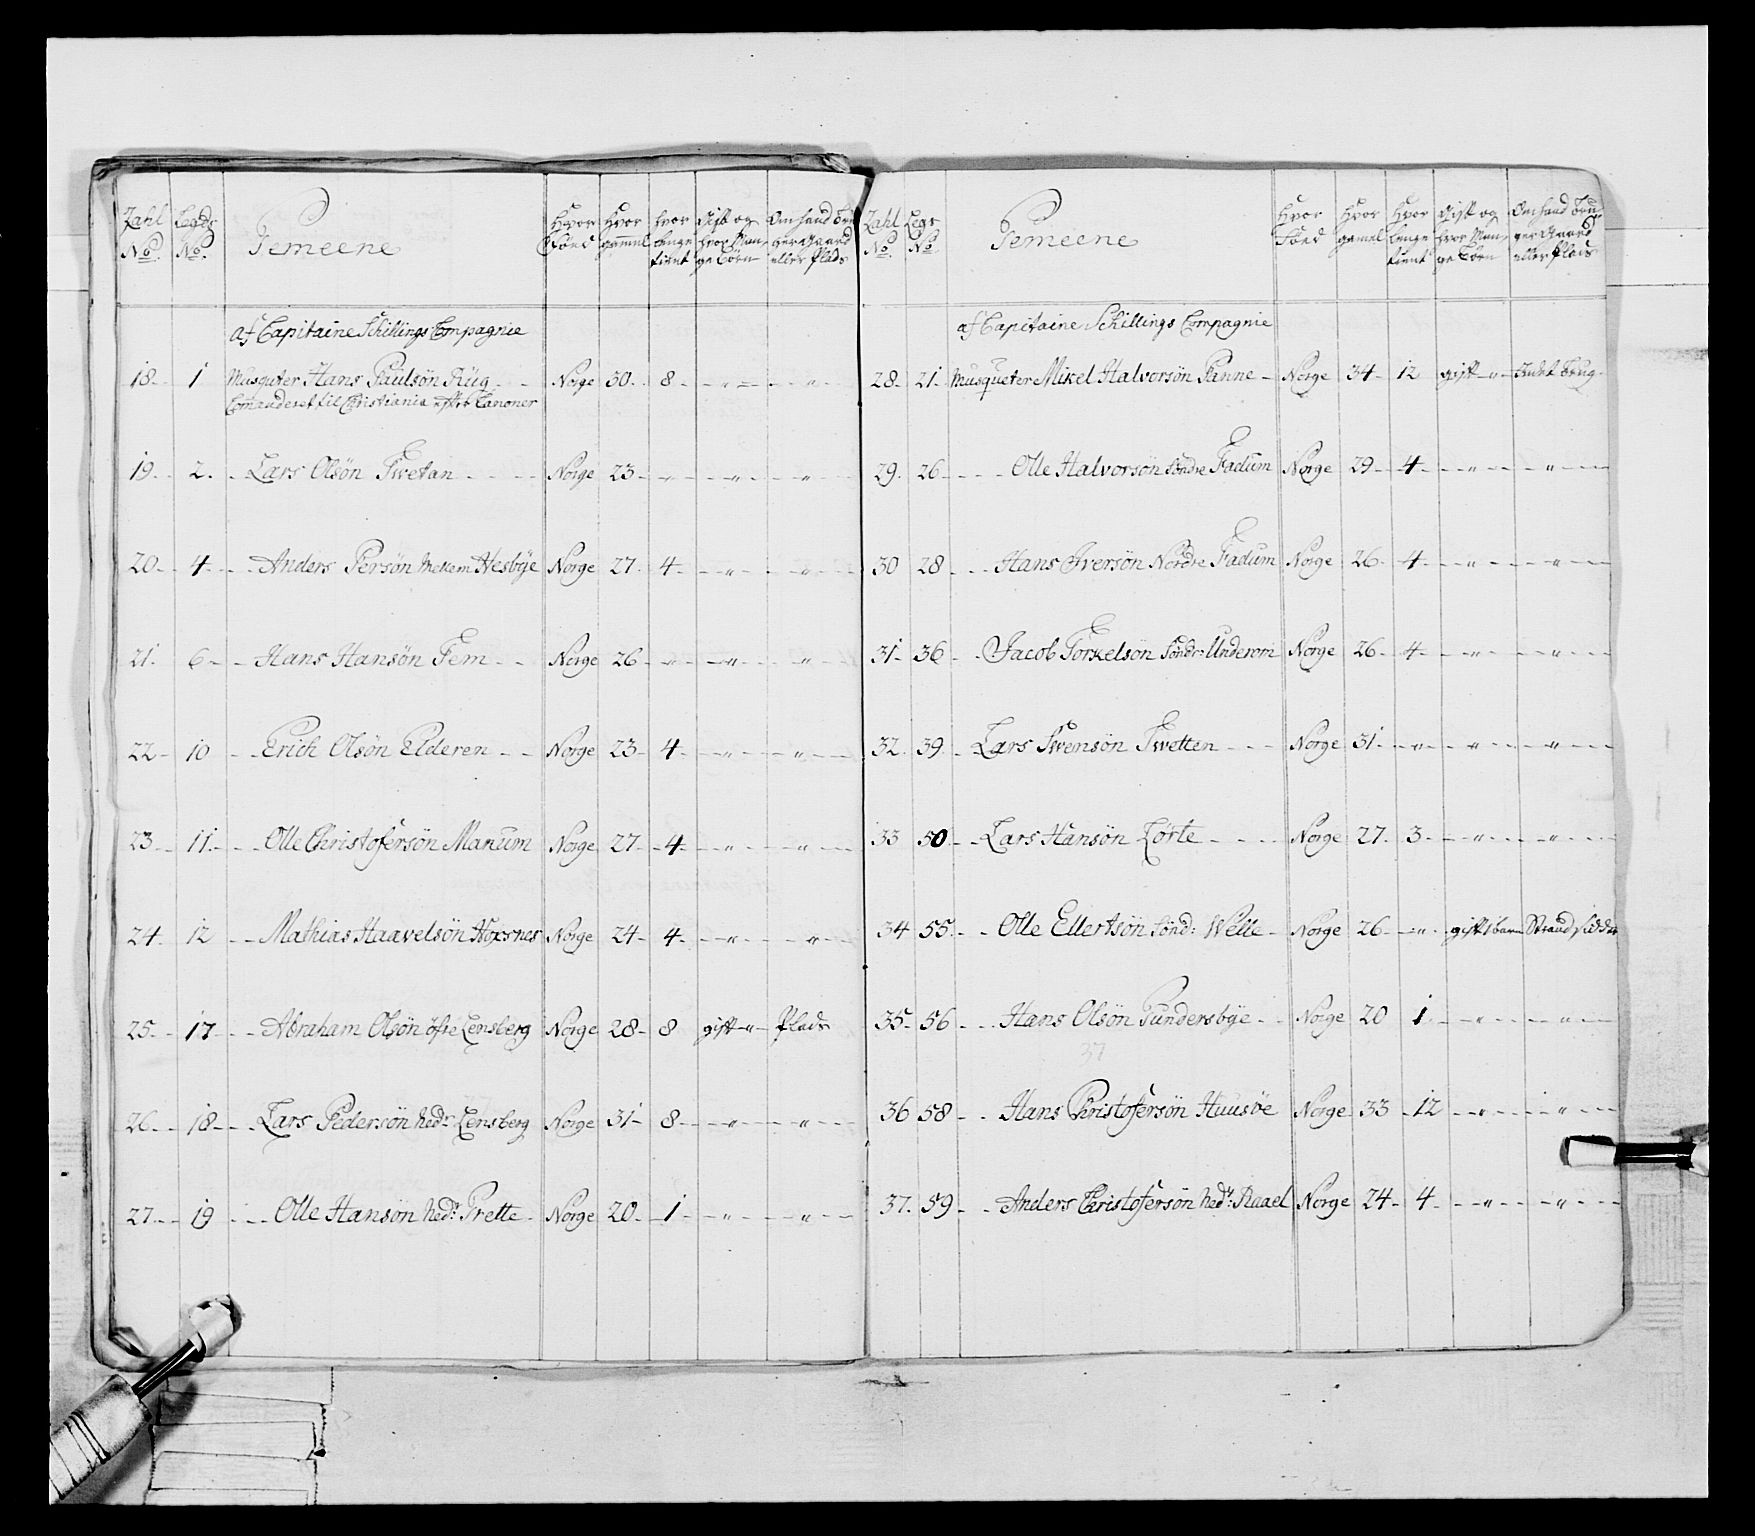 Zahl No. Legds No. Gemeene Hvor Föed Hvor gamel hvor Lenge tient Gift og hvor Man- ge Börn Om hand bru- ger Gaard eller Plads
af Capitaine Schillings Compagnie
18 1 Musqueter Hans Paulsön Rüg Norge 30 8 " "
Comanderet til Christiania efter Canoner
19 2 Lars Olsön Twetan Norge 23 " " "
20 4 Anders Persön Mellem Hesbÿe Norge 27 4 " "
21 6 Hans Hansön Fem Norge 26 " " "
22 10 Erich Olsön Elderen Norge 23 4 " "
23 11 Olle Christofersön Manum Norge 27 4 " "
24 12 Mathias Haavelsön Hoxsnes Norge 24 4 " "
25 17 Abraham Olsön öfre Lensberg Norge 28 8 gift " Plads
26 18 Lars Pedersön ned: Lensberg Norge 31 8 " "
27 19 Olle Hansön ned: Prette Norge 20 1 " "
Zahl No. Legs No. Gemeene Hvor Föed Hvor gamel Hvor Lenge tient Gift og hvor Man- ge Börn Om hand bru- ger Gaard eller Plads
af Capitaine Schillings Compagnie
28 21 Musqueter Mikel Halvorsön Panne Norge 34 12 gift "
29 26 Olle Halvorsön Söndre Fadum Norge 29 4 " "
30 28 Hans Iversön Nordre Fadum Norge 26 4 " "
31 36 Jacob Torkelsön Söndr: Underom Norge 26 4 " "
32 39 Lars Swensön Twetten Norge 31 " " "
33 50 Lars Hansön Lörte Norge 27 3 " "
34 55 Olle Ellertsön Sönd: Welle Norge 26 " gift 1 barn Strand sidder
35 56 Hans Olsön Gundersbÿe Norge 20 1 " "
37
36 58 Hans Christofersön Huusöe Norge 33 12 " "
37 59 Anders Christofersön ned: Raael Norge 24 4 " "